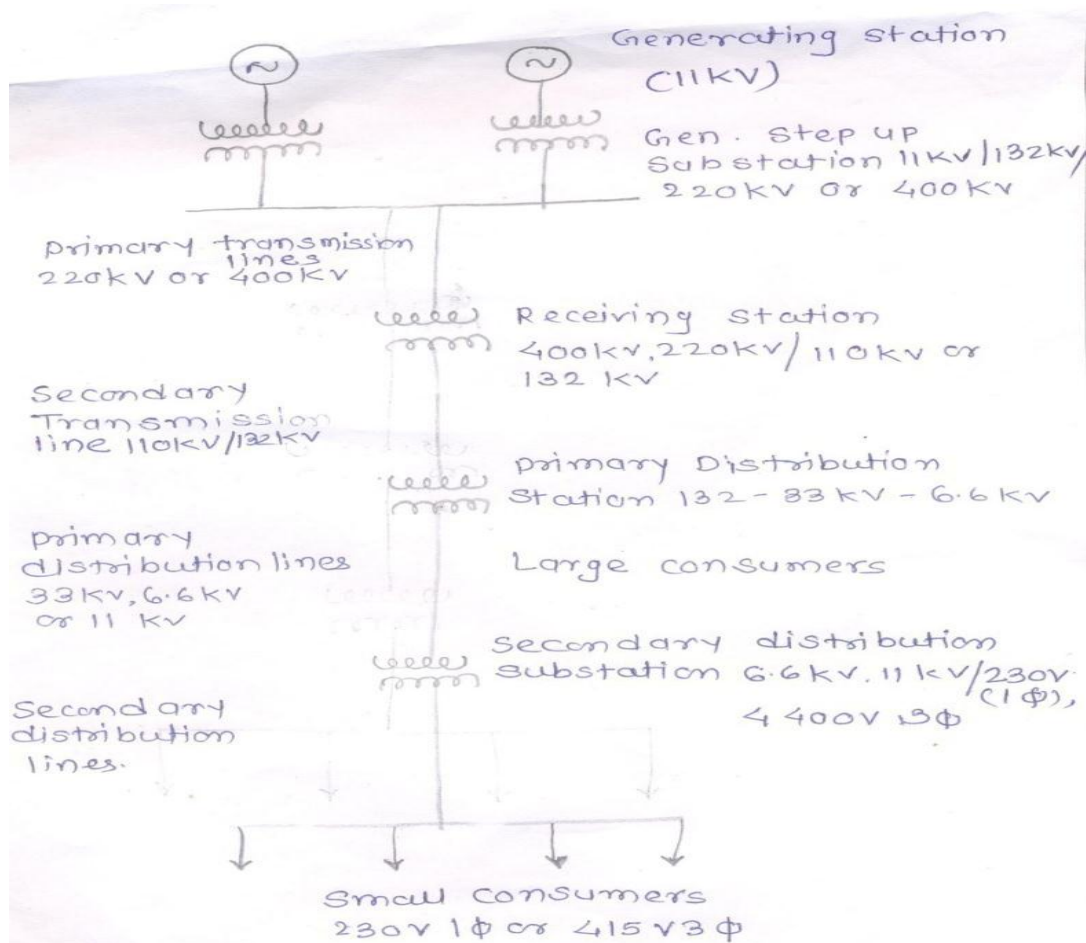 Generating station
(11KV)
Gen. Step up
Substation 11KV/132KV/
220KV or 400KV
Primary transmission
lines
220KV or 400KV
Receiving station
400KV, 220KV/110KV or
132 KV
Secondary
Transmission
line 110KV/132KV
Primary Distribution
Station 132-33KV-6.6KV
Primary
distribution lines
33KV, 6.6KV
or 11 KV
Large consumers
Secondary distribution
substation 6.6KV. 11KV/230V
(1ϕ),
4 400V 3ϕ
Secondary
distribution
lines.
Small consumers
230V 1ϕ or 415V3ϕ